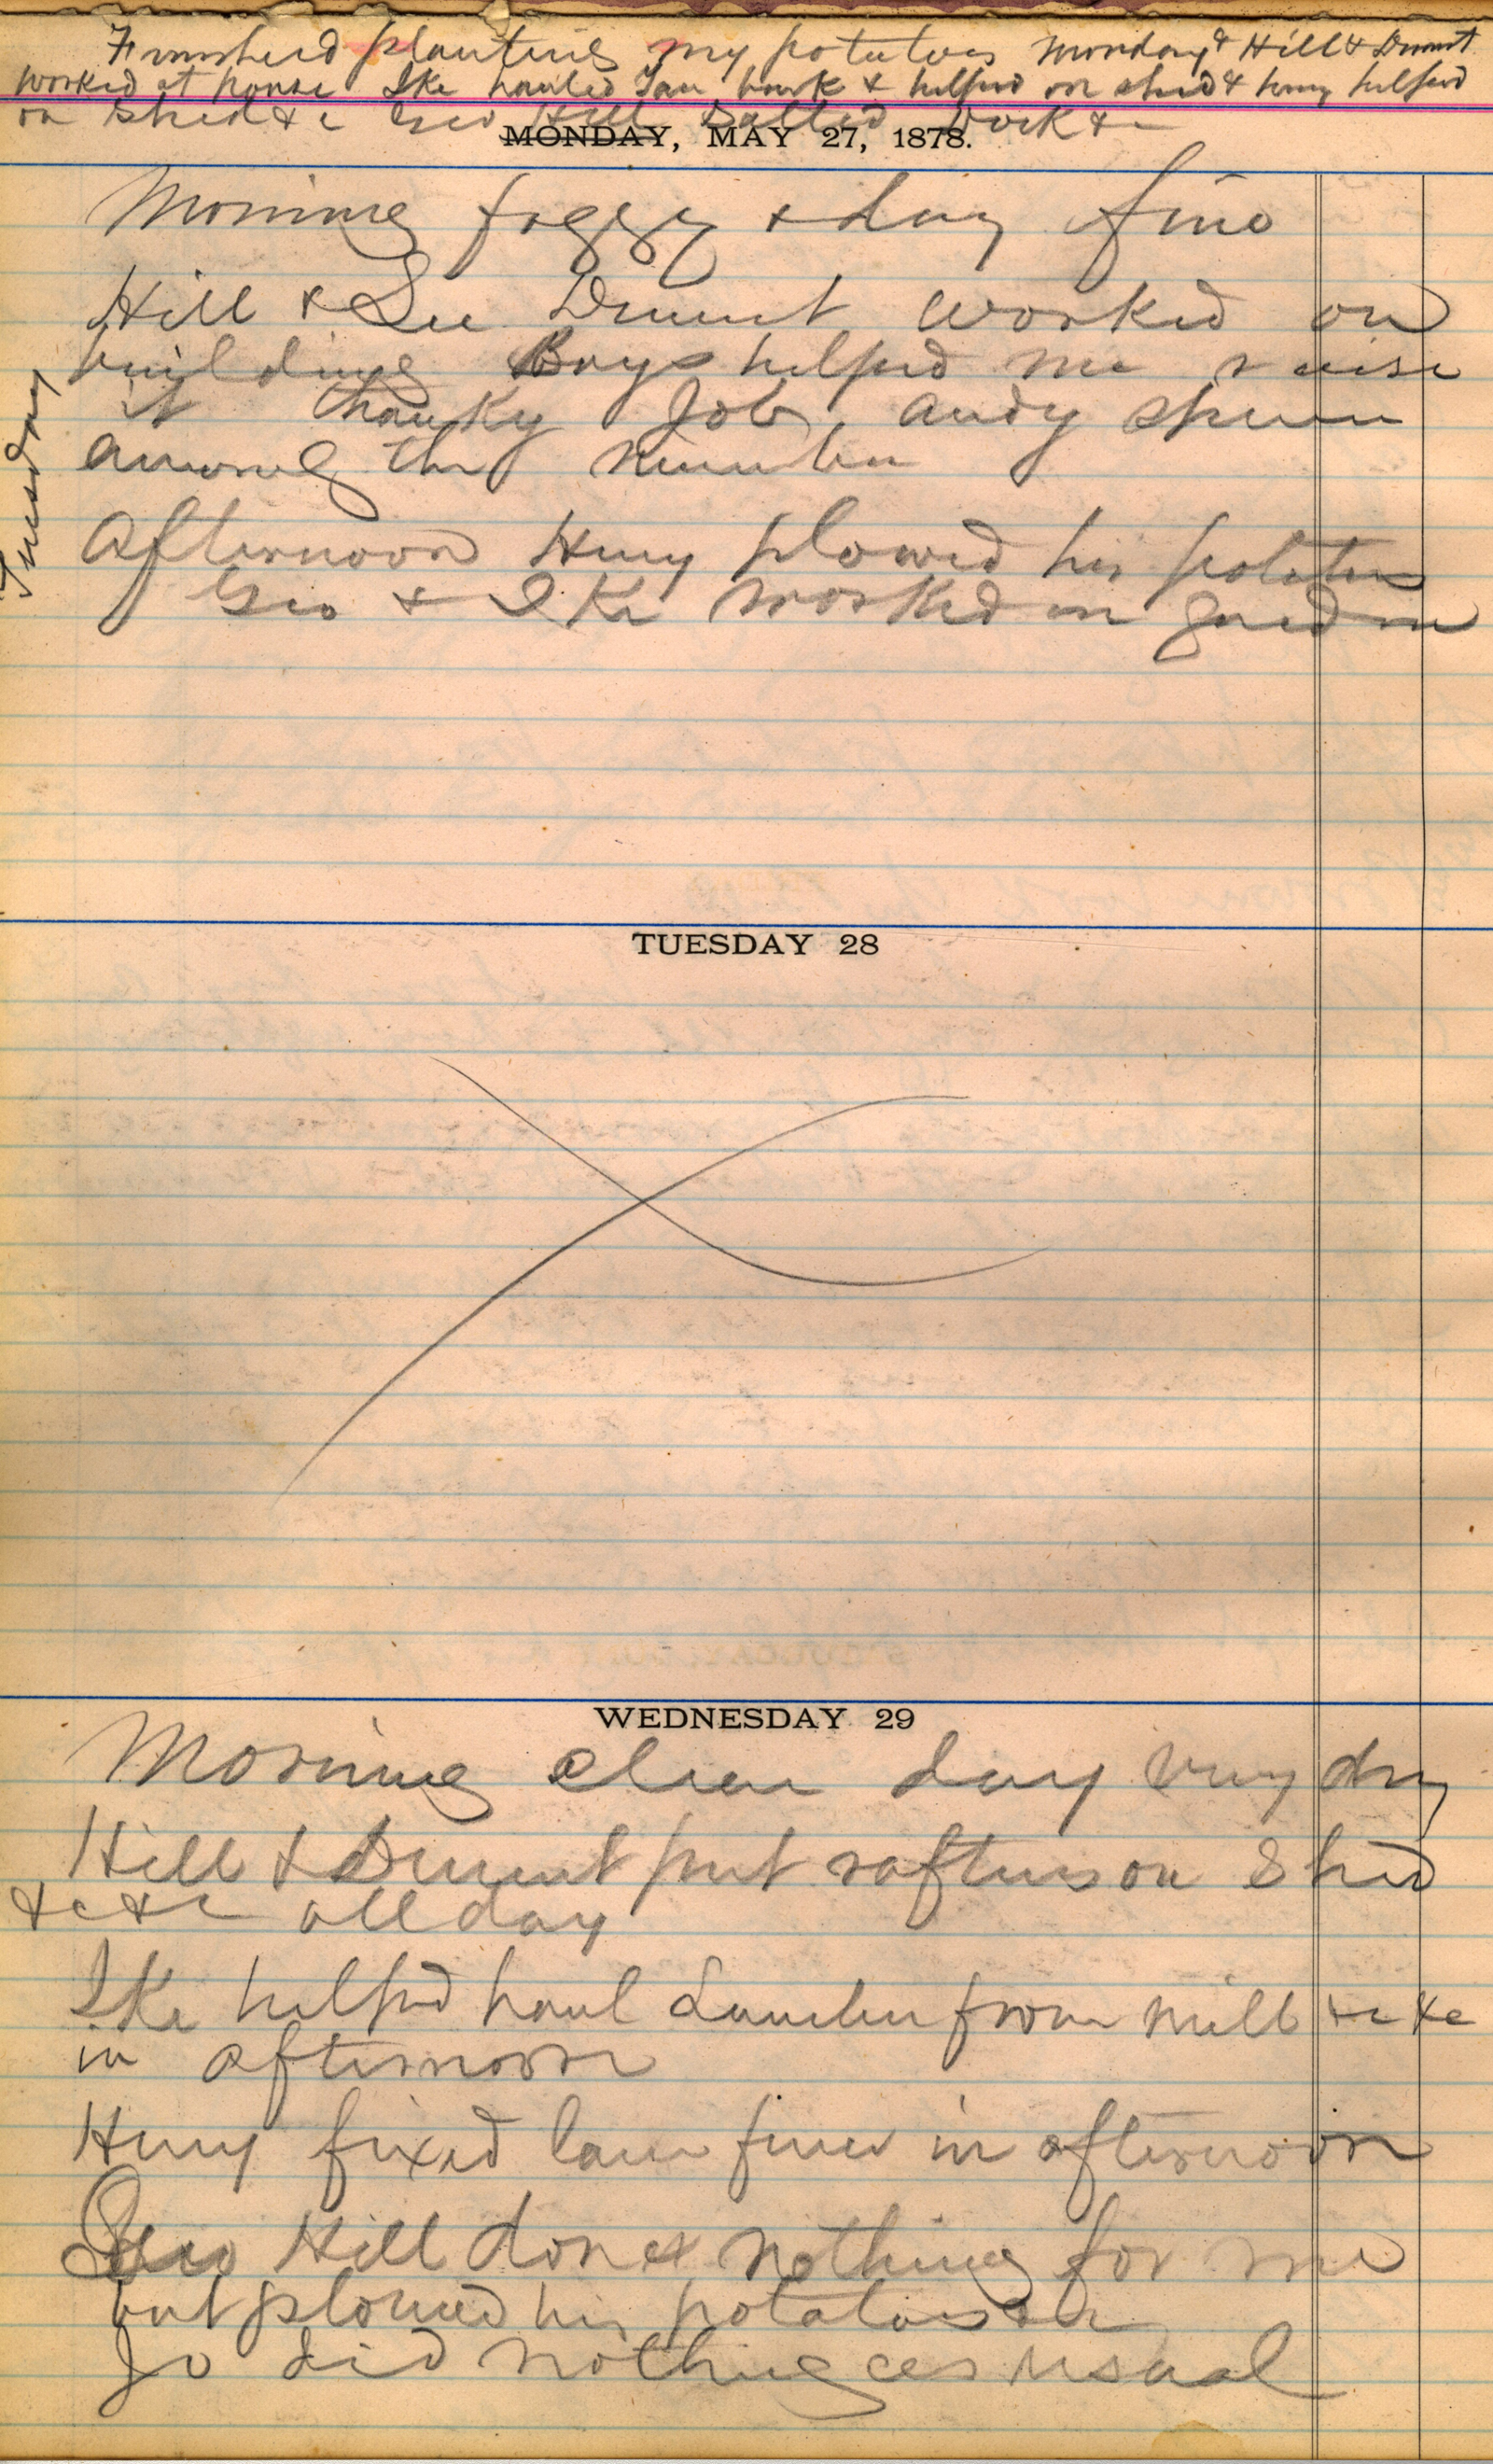 Finished planting my potatoes Monday & Hill & Dement
worked at house Ike hauled Tan bark & helped on shed & Henry helped
on shed &c Geo Hill Salted Pork &c
MONDAY, MAY 27, 1878.
Morning foggy & day fine
Hill & Lee Dement worked on
building Boys helped me raise
it Job Andy
among the number
Tuesday
Afternoon Henry plowed his potatoes
Geo & Ike worked in garden
TUESDAY 28
WEDNESDAY 29
Morning clear day very dry
Hill & Dement put rafters on Shed
&c&c all day
Ike helped haul Lumber from mill &c &c
in afternoon
Henry fixed lane fence in afternoon
Geo Hill done nothing for me
but plowed his potatoes &c
Jo did nothing as usual